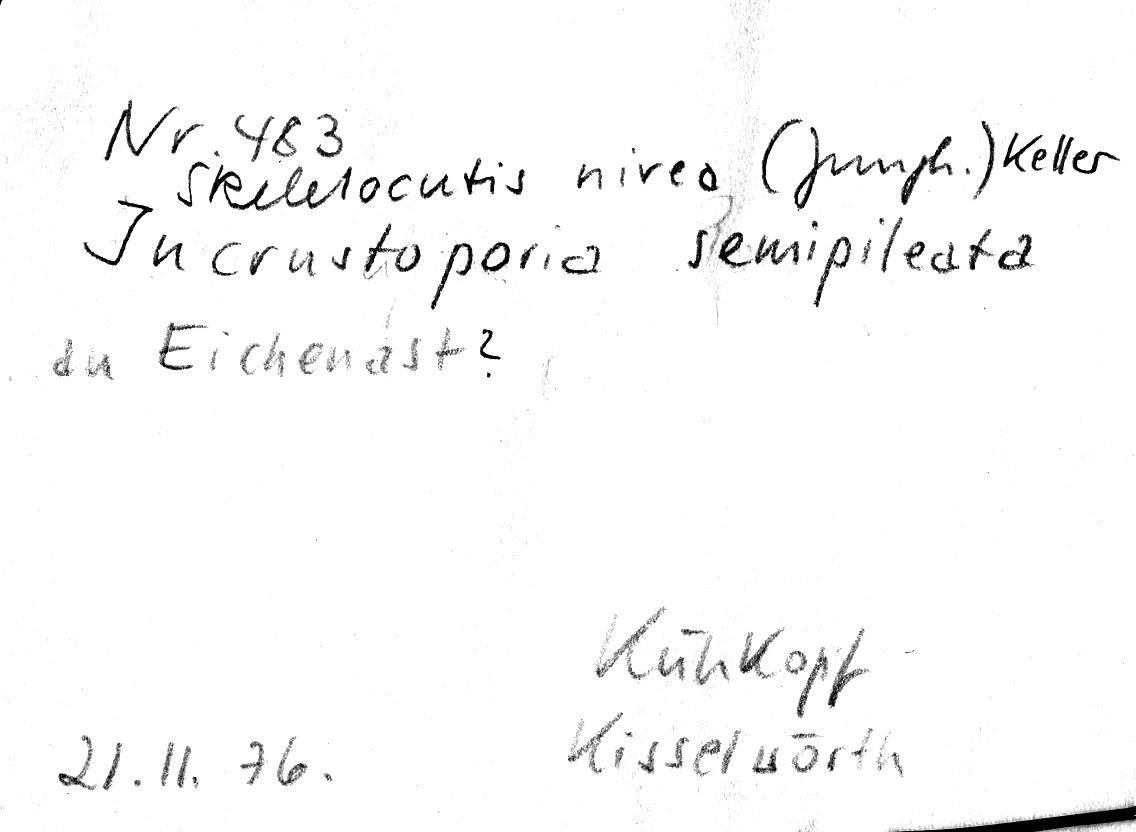 Nr. 483
Skeletocutis nivea (Jungh.) Keller
Incrustoporia semipileata
an Eichenast?
Kühkopf
Kisselwörth
21.11.76.